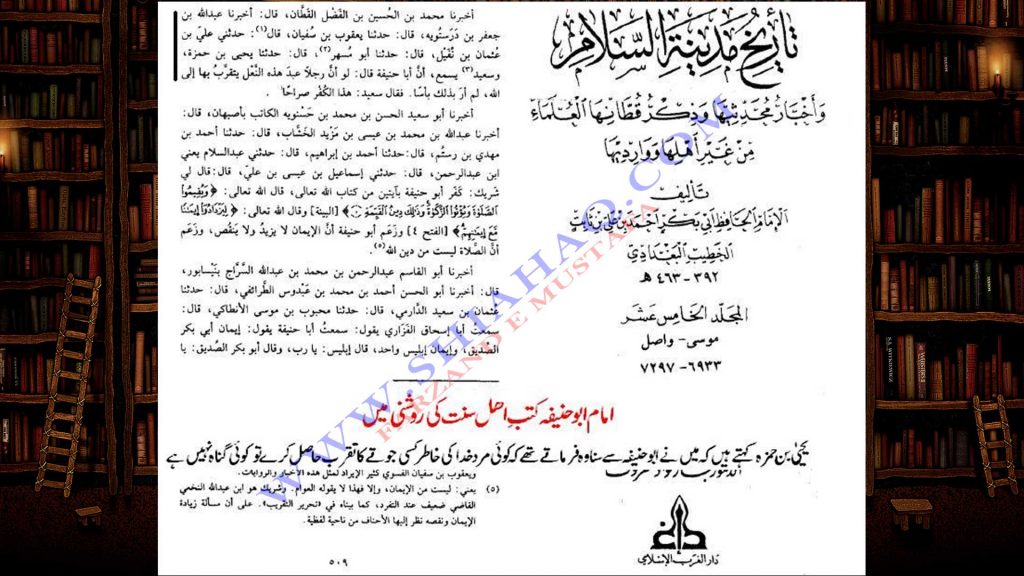 أخبرنا محمد بن الحُسين بن الفَضْل القَطَّان، قال: أخبرنا عبدالله بن
جعفر بن دَرَسْتُويه، قال: حدثنا يعقوب بن سُفيان، قال(١): حدثني عليّ بن
عُثمان بن نُفَيْل، قال: حدثنا أبو مُسْهر(٢)، قال: حدثنا يحيى بن حمزة،
وسعيد(٣) يسمع، أنَّ أبا حنيفة قال: لو أنَّ رجلاً عبدَ هذه النَّعْل يتقرَّبُ بها إلى
الله، لم أرَ بذلك بأسًا. فقال سعيد: هذا الكُفْر صراحًا
أخبرنا أبو سعيد الحسن بن محمد بن حَسْنويه الكاتب بأصبهان، قال:
أخبرنا عبدالله بن محمد بن عيسى بن مَزْيد الخَشَّاب، قال: حدثنا أحمد بن
مهدي بن رستُم، قال: حدثنا أحمد بن إبراهيم، قال: حدثني عبدالسلام يعني
ابن عبدالرحمن، قال: حدثني إسماعيل بن عيسى بن عليّ، قال: قال لي
شَريك: كَفَر أبو حنيفة بآيتين من كتاب الله تعالى، قال الله تعالى: ﴿وَيُقِيمُوا
الصَّلَاةَ وَيُؤْتُوا الزَّكَاةَ وَذَٰلِكَ دِينُ الْقَيِّمَةِ﴾ [البينة] وقال الله تعالى: ﴿لِيَزْدَادُوا إِيمَانًا
مَّعَ إِيمَانِهِمْ﴾ [الفتح ٤] وزَعَم أبو حنيفة أنَّ الإيمان لا يزيدُ ولا يَنقُص، وزَعَم
أنَّ الصَّلاة ليست من دين الله(٥)
أخبرنا أبو القاسم عبدالرحمن بن محمد بن عبدالله السَّرَّاج بنَيْسابور،
قال: أخبرنا أبو الحسن أحمد بن محمد بن عَبْدوس الطَّرائفي، قال: حدثنا
عُثمان بن سعيد الدَّارمي، قال: حدثنا محبوب بن موسى الأنطاكي، قال:
سمعتُ أبا إسحاق الفَزَاري يقول: سمعتُ أبا حنيفة يقول: إيمان أبي بكر
الصديق، وإيمان إبليس واحد، قال إبليس: يا رب، وقال أبو بكر الصديق: يا
تاريخ مدينة السلام
وأخبار محدثيها وذكر قطانها العلماء
من غير أهلها ووارديها
تأليف
الإمام الحافظ أبي بكر أحمد بن علي بن ثابت
الخطيب البغدادي
٣٩٢ - ٤٦٣ هـ
المجلد الخامس عشر
موسى - واصل
٦٩٣٣ - ٧٢٩٧
امام ابو حنیفہ کتب اہل سنت کی روشنی میں
یحیٰ بن حمزہ کہتے ہیں کہ میں نے ابو حنیفہ سے سنا وہ فرماتے تھے کہ کوئی مرد خدا کی خاطر کسی جوتے کا تقرب حاصل کرے تو کوئی گناہ نہیں ہے
ويعقوب بن سفيان الفسوي كثير الإيراد لمثل هذه الأخبار والروايات.
(٥) يعني: ليست من الإيمان، وإلا فهذا لا يقوله العوام. وشريك هو ابن عبدالله النخعي
القاضي ضعيف عند التفرد، كما بيناه في «تحرير التقريب». على أن مسألة زيادة
الإيمان ونقصه نظر إليها الأحناف من ناحية لفظية.
٥٠٩
دار الغرب الإسلامي
WWW.SHIAHAQ.COM
FARZAND E MUSTAFA